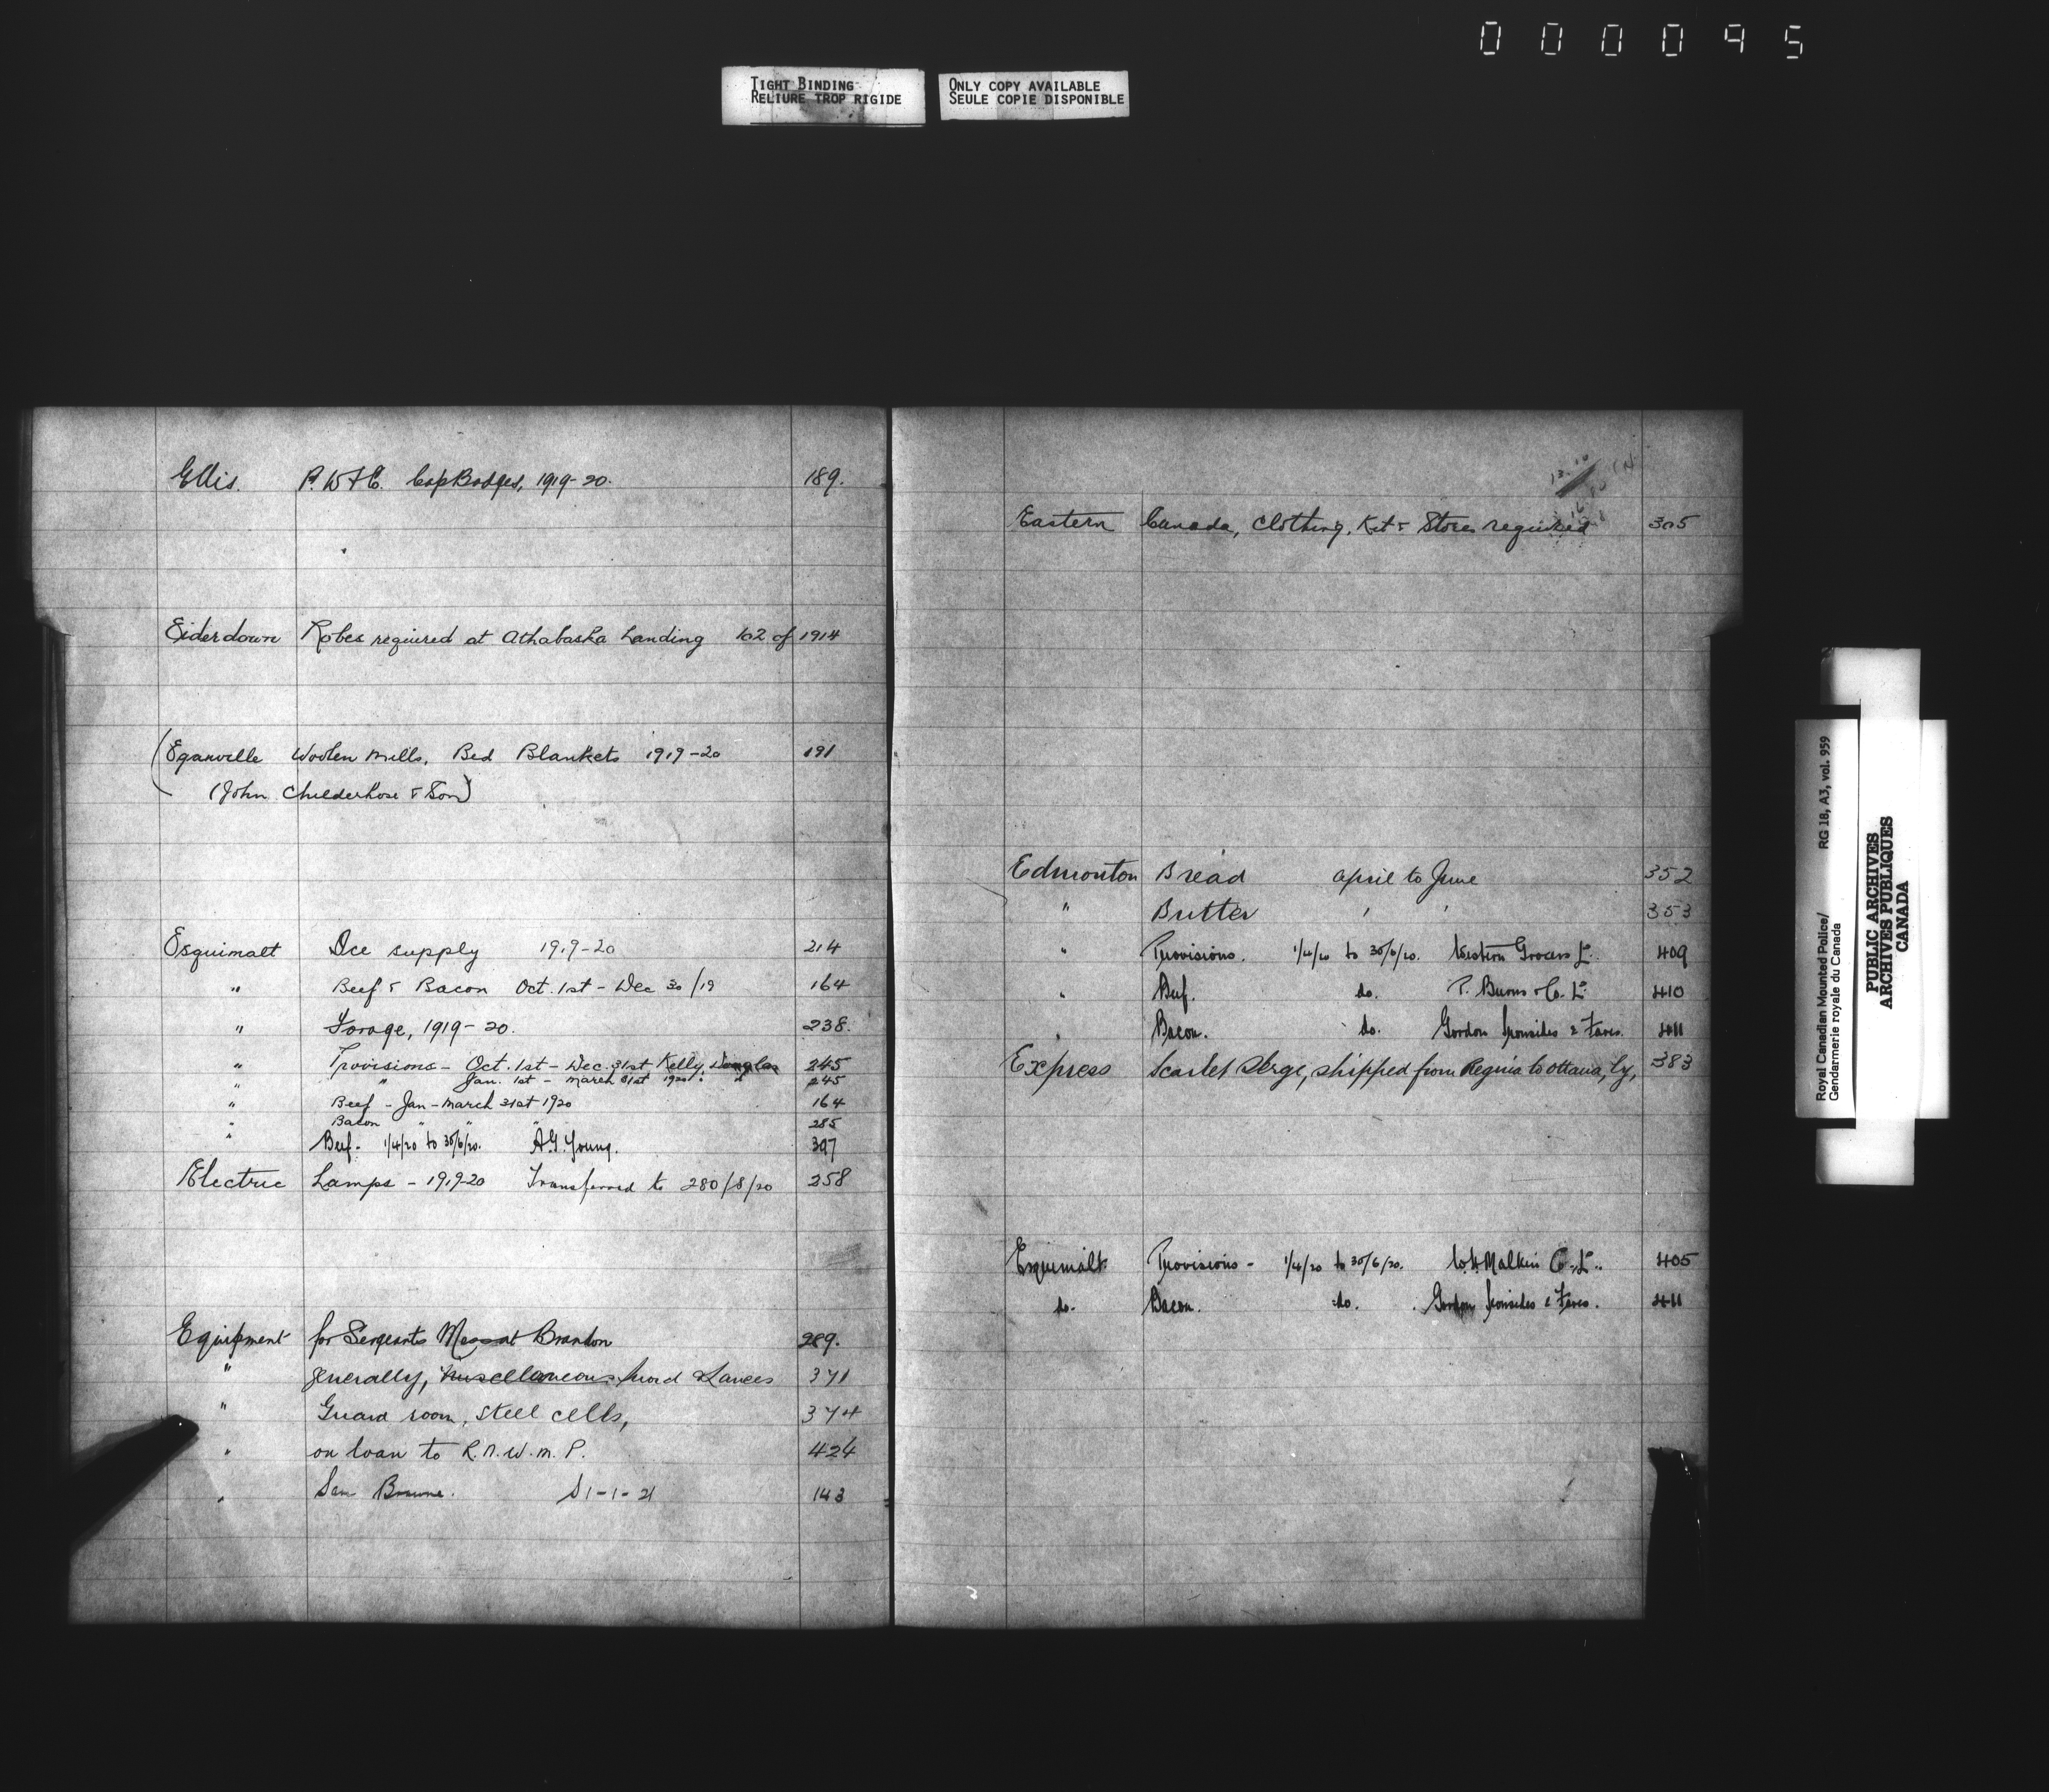 000095
TIGHT BINDING
RELIURE TROP RIGIDE
ONLY COPY AVAILABLE
SEULE COPIE DISPONIBLE
Ellis. P. W & C. Cap Badges, 1919-20. 189.
Eiderdown Robes required at Athabaska Landing 102 of 1914
(Eganville Woolen Mills, Bed Blankets 1919-20 191
(John Childerhose & Son)
Esquimalt Ice supply 1919-20 214
" Beef & Bacon Oct. 1st - Dec 30/19 164
" Forage, 1919-20. 238.
" Provisions - Oct. 1st - Dec. 31st Kelly Douglas 245
" " Jan. 1st - March 31st 1920 " " 245
" Beef - Jan - March 31st 1920 164
" Bacon " " 285
" Beef - 1/4/20 to 30/6/20. A.G. Young. 397
Electric Lamps - 1919-20 Transferred to 280/8/20 258
Equipment for Sergeants Mess at Brandon 289.
" generally, miscellaneous Sword Lances 371
" Guard room, steel cells, 374
" on loan to R.N.W.M.P. 424
" Sam Browne. S 1-1-21 143
Eastern Canada, Clothing, Kit & Stores required 305
Edmonton Bread April to June 352
" Butter ' ' 353
" Provisions. 1/4/20 to 30/6/20. Western Grocers Ld. 409
" Beef. do. P. Burns & Co. Ld. 410
" Bacon. do. Gordon Ironsides & Fares. 411
Express Scarlet Serge, shipped from Regina to Ottawa, by, 383
Esquimalt Provisions - 1/4/20 to 30/6/20. W.H. Malkin Co. Ld. 405
do. Bacon. do. Gordon Ironsides & Fares. 411
Royal Canadian Mounted Police/ RG 18, A3, vol. 959
Gendarmerie royale du Canada
PUBLIC ARCHIVES
ARCHIVES PUBLIQUES
CANADA